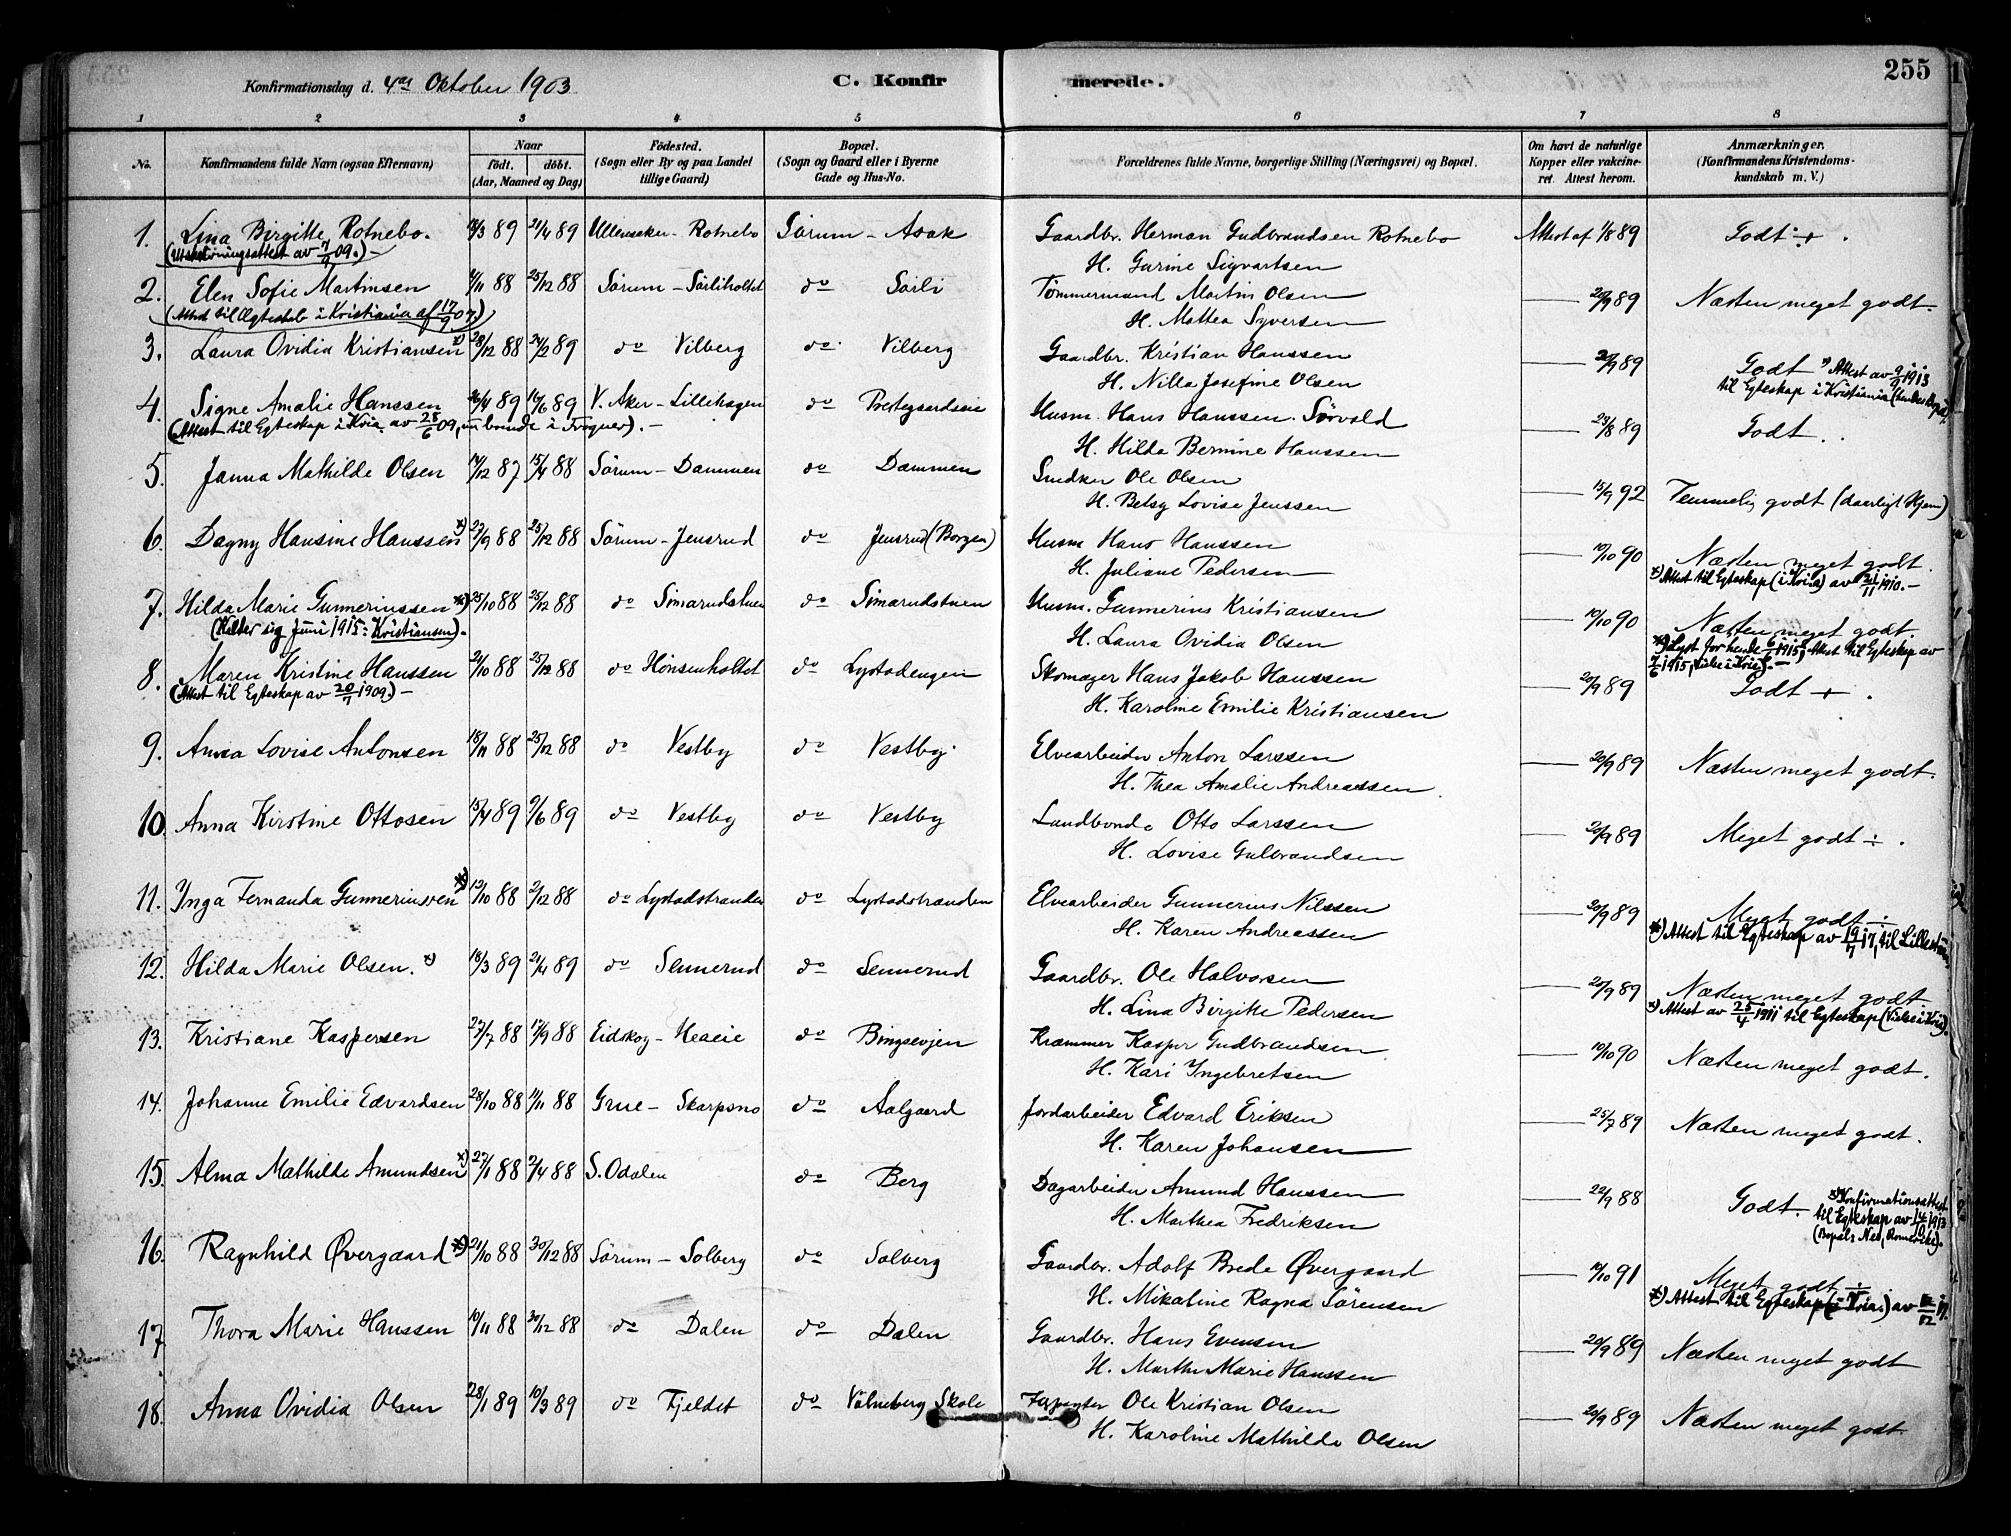 255
Konfirmationsdag d. 4de Oktober 1903 C. Konfirmerede.
1 2 3 4 5 6 7 8
No. Konfirmandens fulde Navn (ogsaa Efternavn) Naar født. døbt. (Aar, Maaned og Dag) Födested. (Sogn eller By og paa Landet tillige Gaard) Bopæl. (Sogn og Gaard eller i Byerne Gade og Hus-No. Forældrenes fulde Navne, borgerlige Stilling (Næringsvei) og Bopæl. Om havt de naturlige Kopper eller vakcineret. Attest herom. Anmærkninger. (Konfirmandens Kristendomskundskab m. V.)
1. Lina Birgitte Rotnebo. 18/3 89 21/4 89 Ullensaker - Rotnebo Sørum - Asak Gaardbr. Herman Gudbrandsen Rotnebo Attest af 1/8 89 Godt ÷ .
(Utskrivningsattest av 7/9 09.) - H. Gurine Sigvartsen
2. Elen Sofie Martinsen 4/11 88 25/12 88 Sørum - Sørliholtet do Sørli Tømmermand Martin Olsen — 20/9 89 Næsten meget godt.
(Attest til Ægteskab i Kristiania af 17/9 07.) H. Mathea Syversen
3. Laura Ovidia Kristiansen x) 28/12 88 24/2 89 do Vilberg do Vilberg Gaardbr. Kristian Hanssen — 20/9 89 Godt x) Attest av 9/9 1913
H. Nilla Josefine Olsen til Egteskap i Kristiania
4. Signe Amalie Hanssen 16/4 89 10/6 89 V. Aker - Lillehagen do Prestegaardseie Husm. Hans Hanssen Sörvold — 23/8 89 Godt . .
(Attest til Egteskap i Kria. av 25/6 09, nu boende i Frogner). - H. Hilda Bernine Hanssen
5. Janna Mathilde Olsen 14/12 87 15/4 88 Sørum - Dammen do Dammen Snedker Ole Olsen — 15/9 92 Temmelig godt (daarligt Hjem)
H. Betsy Lovise Jenssen
6. Dagny Hansine Hanssen x) 22/9 88 25/12 88 Sørum - Jensrud do Jensrud (Borgen) Husm Hans Hanssen — 10/10 90 Næsten meget godt.
H. Juliane Pedersen x) Attest til Egteskap (i Kria) av 21/11 1910. -
7. Hilda Marie Gunneriussen x) 25/10 88 25/12 88 do Simarudstuen do Simarudstuen Husm. Gunnerius Kristiansen — 10/10 90 Næsten meget godt.
(Kalder sig Juni 1915: Kristiansen). H. Laura Ovidia Olsen x) Lyst for hende 6/6 1915, Attest til Egteskap av
8. Maren Kristine Hanssen 21/10 88 25/12 88 do Hönsenholtet do Lystadengen Skomager Hans Jakob Hanssen — 20/9 89 Godt + .
(Attest til Egteskap av 20/11 1909.) - H. Karoline Emilie Kristiansen
9. Anna Lovise Antonsen 18/11 88 25/12 88 do Vestby do Vestby Elvearbeider Anton Larssen — 20/9 89 Næsten meget godt.
H. Thea Amalie Andreassen
10. Anna Kirstine Ottosen 15/4 89 9/6 89 do Vestby do Vestby Landbonde Otto Larssen — 20/9 89 Meget godt ÷ .
H. Lovise Gulbrandsen
11. Inga Fernanda Gunneriussen x) 12/10 88 2/12 88 do Lystadstranden do Lystadstranden Elvearbeider Gunnerius Nilssen — 20/9 89 Meget godt ÷
H. Karen Andreassen x) Attest til Egteskap av 19/11 17, til Lillestrøm
12. Hilda Marie Olsen. x) 18/3 89 21/4 89 do Sennerud do Sennerud Gaardbr. Ole Halvorsen — 20/9 89 Næsten meget godt
H. Lina Birgitte Pedersen x) Attest av 25/4 1911 til Egteskap (Vielse i Kria).
13. Kristiane Kaspersen 27/7 88 17/9 88 Eidskog - do Bingsevjen Kræmmer Kaspar Gudbrandsen — 10/10 90 Næsten meget godt.
H. Kari Ingebretsen
14. Johanne Emilie Edvardsen 28/10 88 11/11 88 Grue - Skarpsno do Aalgaard Jordarbeider Edvard Eriksen — 25/7 89 Næsten meget godt.
H. Karen Johansen
15. Alma Mathilde Amundsen x) 27/1 88 2/4 88 S. Odalen do Berg Dagarbeider Amund Hanssen — 22/9 88 Godt. x) Konfirmationsattest
H. Marthea Fredriksen til Egteskap av 14/9 1913
(Bopæl: Nes, Romerike).
16. Ragnhild Øvergaard x) 21/10 88 30/12 88 Sørum - Solberg do Solberg Gaardbr. Adolf Brede Øvergaard — 11/10 91 Meget godt ÷
H. Mikaline Ragna Sörensen x) Attest til Egteskap (i Kria.) av
17. Thora Marie Hanssen 19/11 88 30/12 88 do Dalen do Dalen Gaardbr. Hans Evensen — 20/9 89 Næsten meget godt
H. Marthe Marie Hanssen
18. Anna Ovidia Olsen 28/1 89 10/3 89 do Fjeldet do Valneberg Skole Ole Kristian Olsen — 20/9 89 Næsten meget godt.
H. Karoline Mathilde Olsen